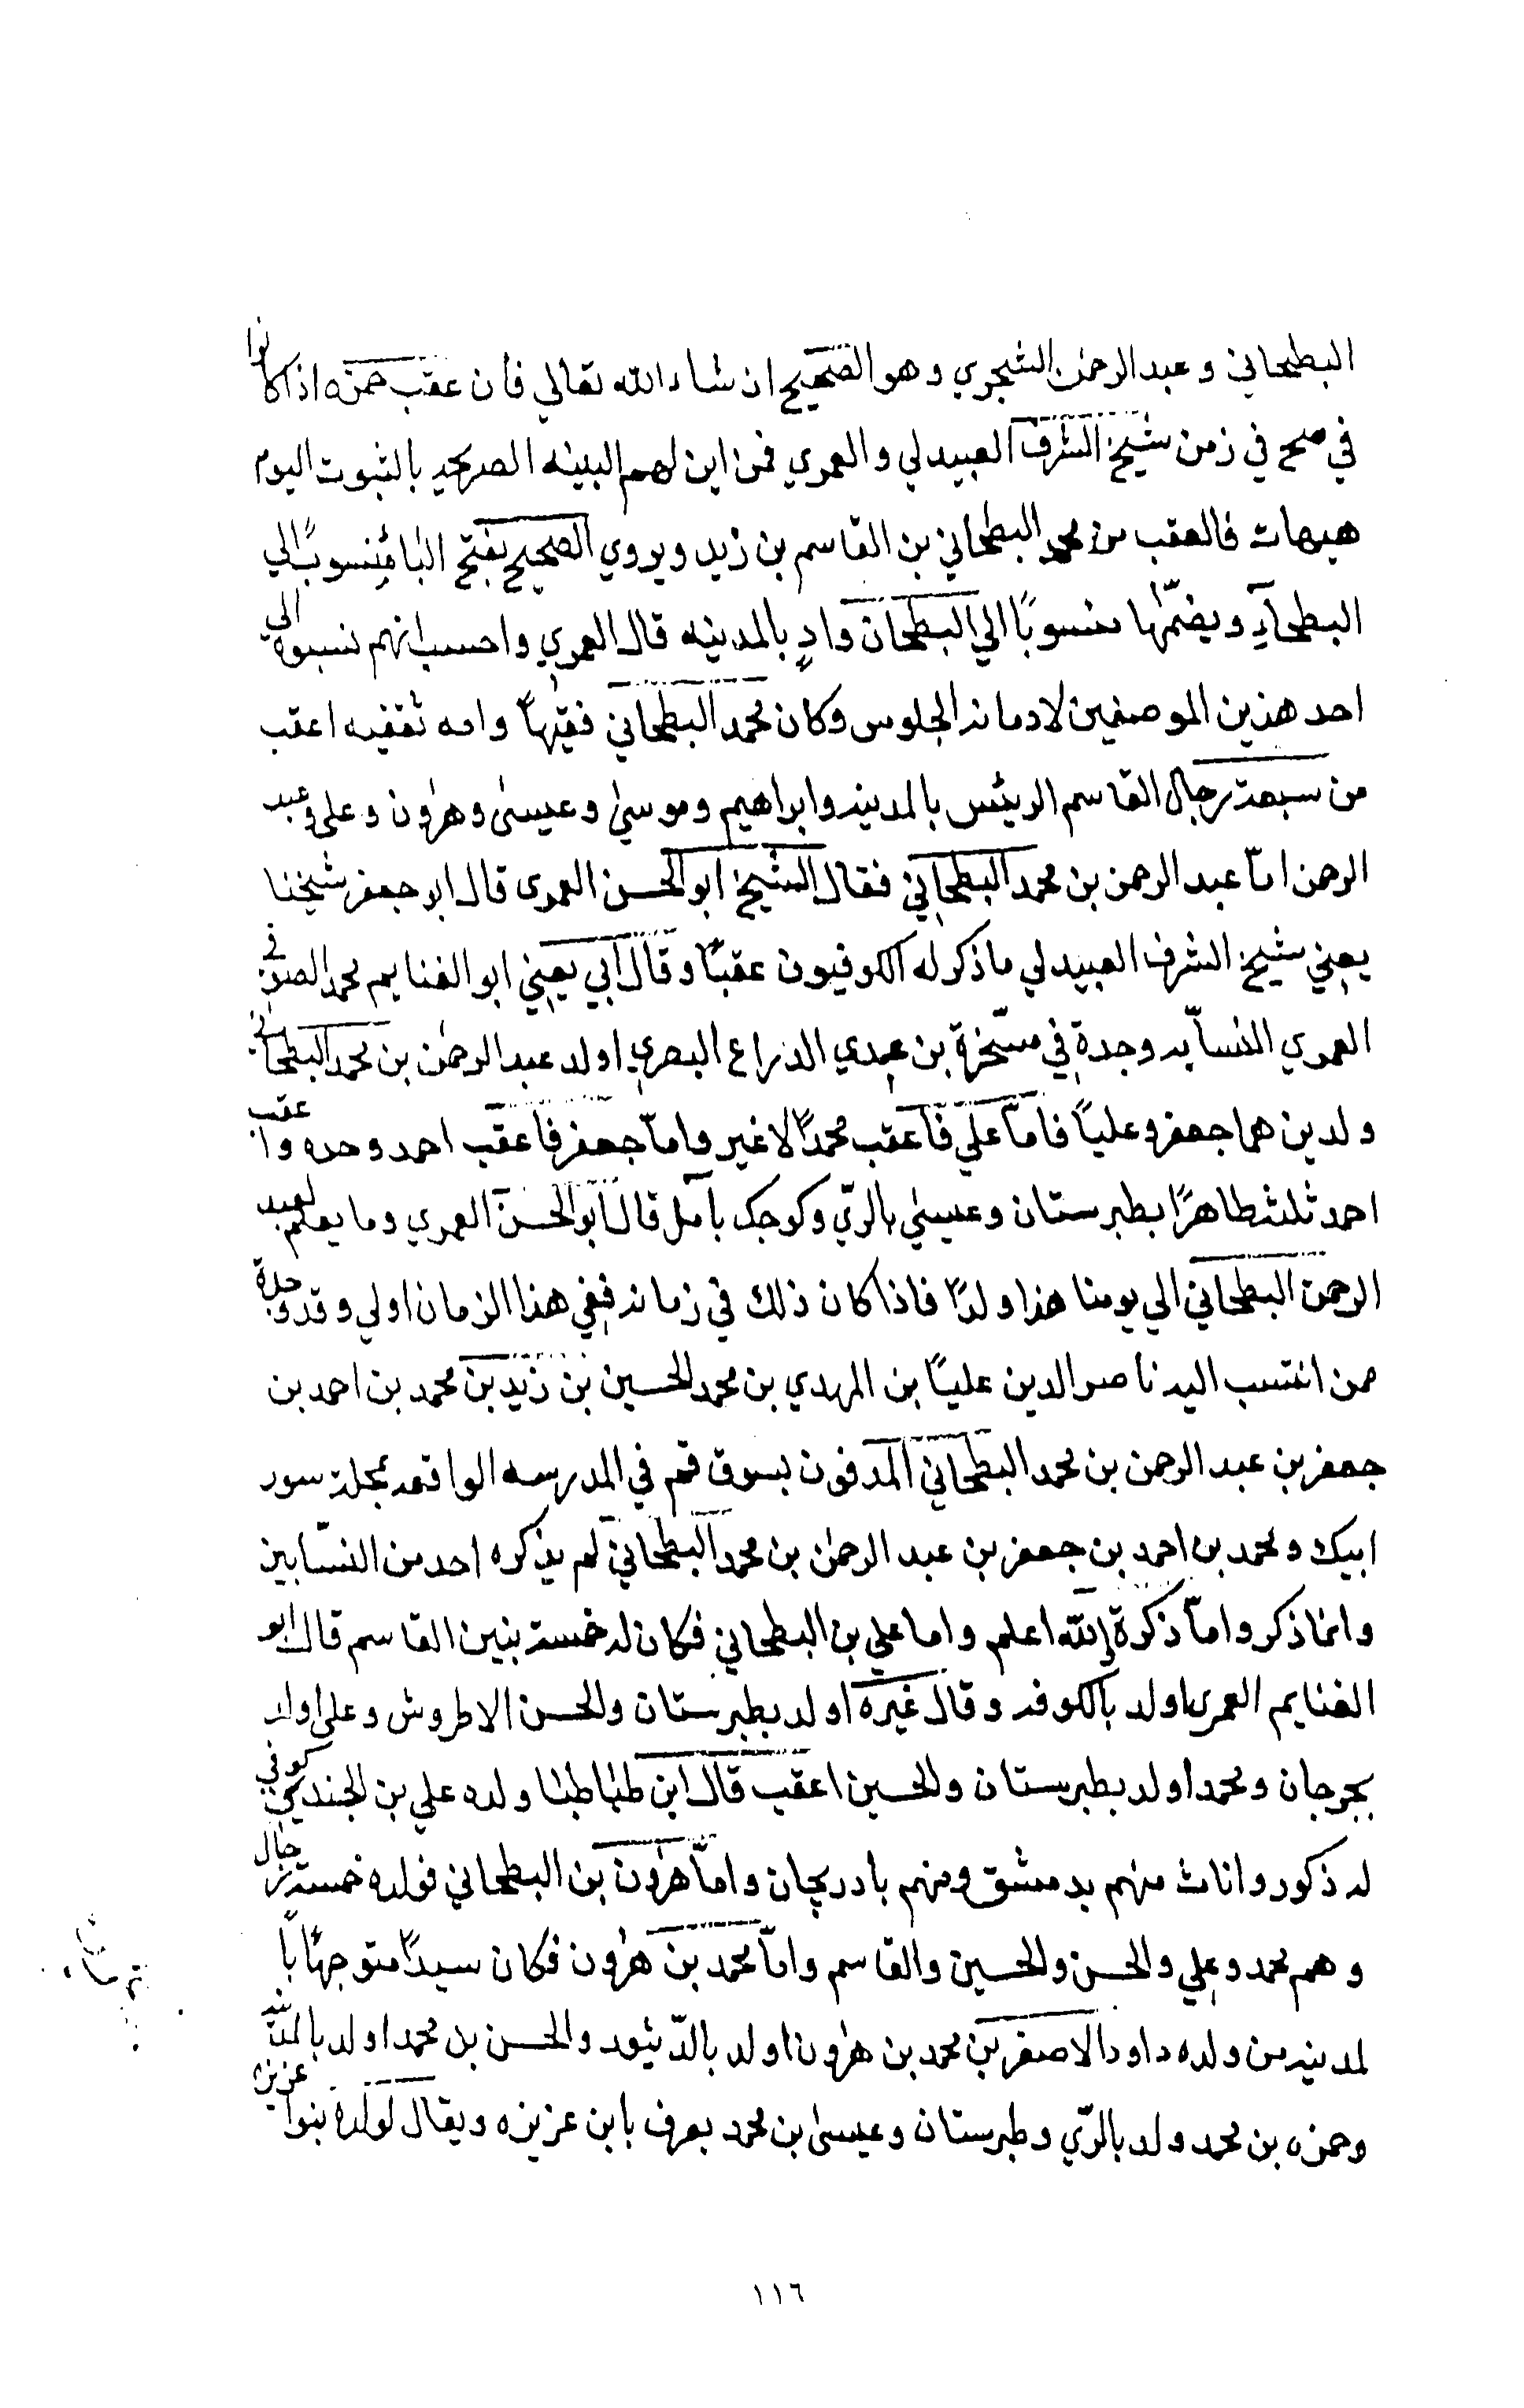 البطحاني وعبد الرحمن الشجري وهو الصحيح ان شاء الله تعالي فان عقب حمزه اذا كانوا
في صح في زمن شيخ الشرف العبيدلي والعمري فمن اين لهم البينه الصريحه بالثبوت اليوم
هيهات فالعقب من محمد البطحاني بن القاسم بن زيد ويروي الصحيح بفتح البا منسوبًا الي
البطحآءِ وبضمّها منسوبًا الي البطحان وادٍ بالمدينه قال العمري واحسب انهم نسبوه الي
احد هذين الموضعين لادمانه الجلوس وكان محمد البطحاني فقيهاً وامه ثقفيه اعقب
من سبعة رجال القاسم الرئيس بالمدينه وابراهيم وموسي وعيسى وهرون وعلي وعبد
الرحمن امّا عبد الرحمن بن محمد البطحاني فقال الشيخ ابو الحسن العمري قال ابو جعفر شيخنا
يعني شيخ الشرف العبيدلي ما ذكر له الكوفيون عقبًا وقال ابي يعني ابو الغنايم محمد الصوفي
العمري النسّابه وجدة في مشخرة بن عبدي الذراع البصري اولد عبد الرحمن بن محمد البطحاني
ولدين هما جعفر وعليًا فامّا علي فاعقب محمدًا لا غير وامّا جعفر فاعقب احمد وحده واعقب
احمد ثلثه طاهرًا بطبرستان وعيسي بالريّ وكوجك بآمل قال ابو الحسن العمري وما يعلم لعبد
الرحمن البطحاني الي يومنا هذا ولدًا فاذا كان ذلك في زمانه ففي هذا الزمان اولي وقد وجدة
ممن انتسب اليه ناصر الدين عليًا بن المهدي بن محمد الحسين بن زيد بن محمد بن احمد بن
جعفر بن عبد الرحمن بن محمد البطحاني المدفون بسوق قم في المدرسه الواقعه بمحلة سور
ابيك ومحمد بن احمد بن جعفر بن عبد الرحمن بن محمد البطحاني لم يذكره احد من النسّابين
وانما ذكروا ما ذكرة الله اعلم واما علي بن البطحاني فكان له خمسة بنين القاسم قال ابو
الغنايم العمري اولد بالكوفه وقال غيره اولد بطبرستان والحسن الاطروش وعلي اولد
بجرجان ومحمد اولد بطبرستان والحسين اعقب قال ابن طباطبا ولده علي بن الجندي كوفي
له ذكور واناث منهم بدمشق ومنهم باذربيجان وامّا هرون بن البطحاني فولده خمسة رجال
وهم محمد وعلي والحسن والحسين والقاسم وامّا محمد بن هرون فكان سيدًا متوجهًا با
لمدينه من ولده داود الاصغر بن محمد بن هرون اولد بالدّينور والحسن بن محمد اولد بالمدينه
وحمزه بن محمد ولد بالريّ وطبرستان وعيسى بن محمد يعرف بابن عزيزه ويقال لولده بنوا عزيزه
١١٦